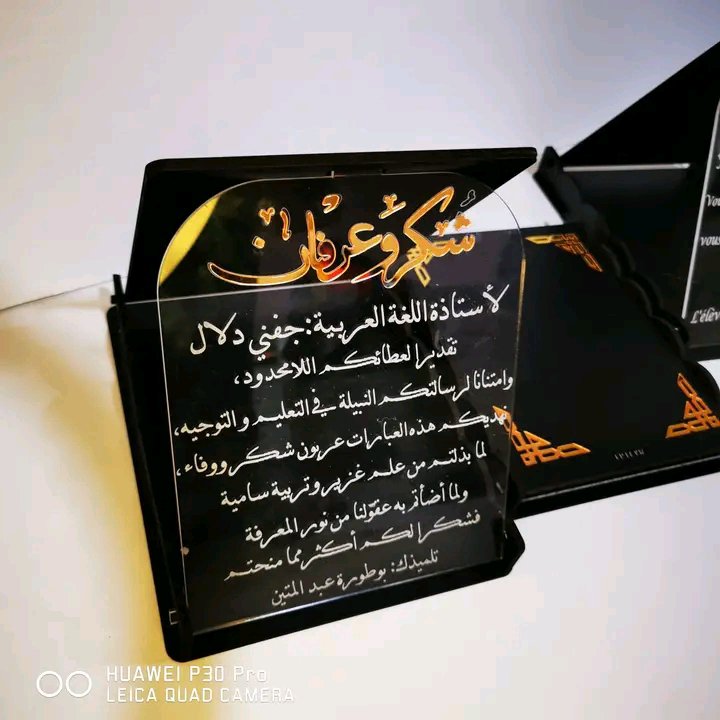 شُكر وَعرفان
لأستاذة اللغة العربية: جفني دلال
تقديرا لعطائكم اللامحدود،
وامتنانا لرسالتكم النبيلة في التعليم والتوجيه،
نهديكم هذه العبارات عربون شكر ووفاء،
لما بذلتم من علم غزير وتربية سامية
ولما أضأتم به عقولنا من نور المعرفة
فشكرا لكم أكثر مما منحتم
تلميذك: بوطورة عبد المتين
Vou
vous
L'élèv
HUAWEI P30 Pro
LEICA QUAD CAMERA